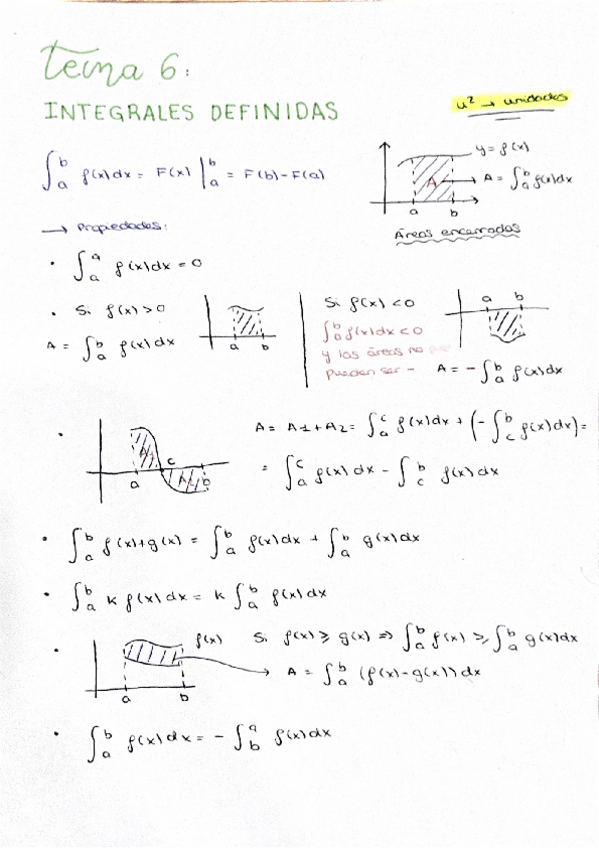 Tema 6:
INTEGRALES DEFINIDAS
u² → unidades
∫_a^b f(x)dx = F(x) |_a^b = F(b)-F(a)
y = f(x)
A
A = ∫_a^b f(x)dx
a b
Áreas encerradas
→ Propiedades:
· ∫_a^a f(x)dx = 0
· Si f(x) > 0
A = ∫_a^b f(x)dx
a b
Si f(x) < 0
∫_a^b f(x)dx < 0
y las áreas no
pueden ser -
a b
A = - ∫_a^b f(x)dx
·
A1
c
a A2 b
A = A1 + A2 = ∫_a^c f(x)dx + (- ∫_c^b f(x)dx) =
= ∫_a^c f(x)dx - ∫_c^b f(x)dx
· ∫_a^b f(x)+g(x) = ∫_a^b f(x)dx + ∫_a^b g(x)dx
· ∫_a^b K f(x)dx = K ∫_a^b f(x)dx
· f(x)
a b
Si f(x) ≥ g(x) ⇒ ∫_a^b f(x) ≥ ∫_a^b g(x)dx
A = ∫_a^b (f(x)-g(x))dx
· ∫_a^b f(x)dx = - ∫_b^a f(x)dx